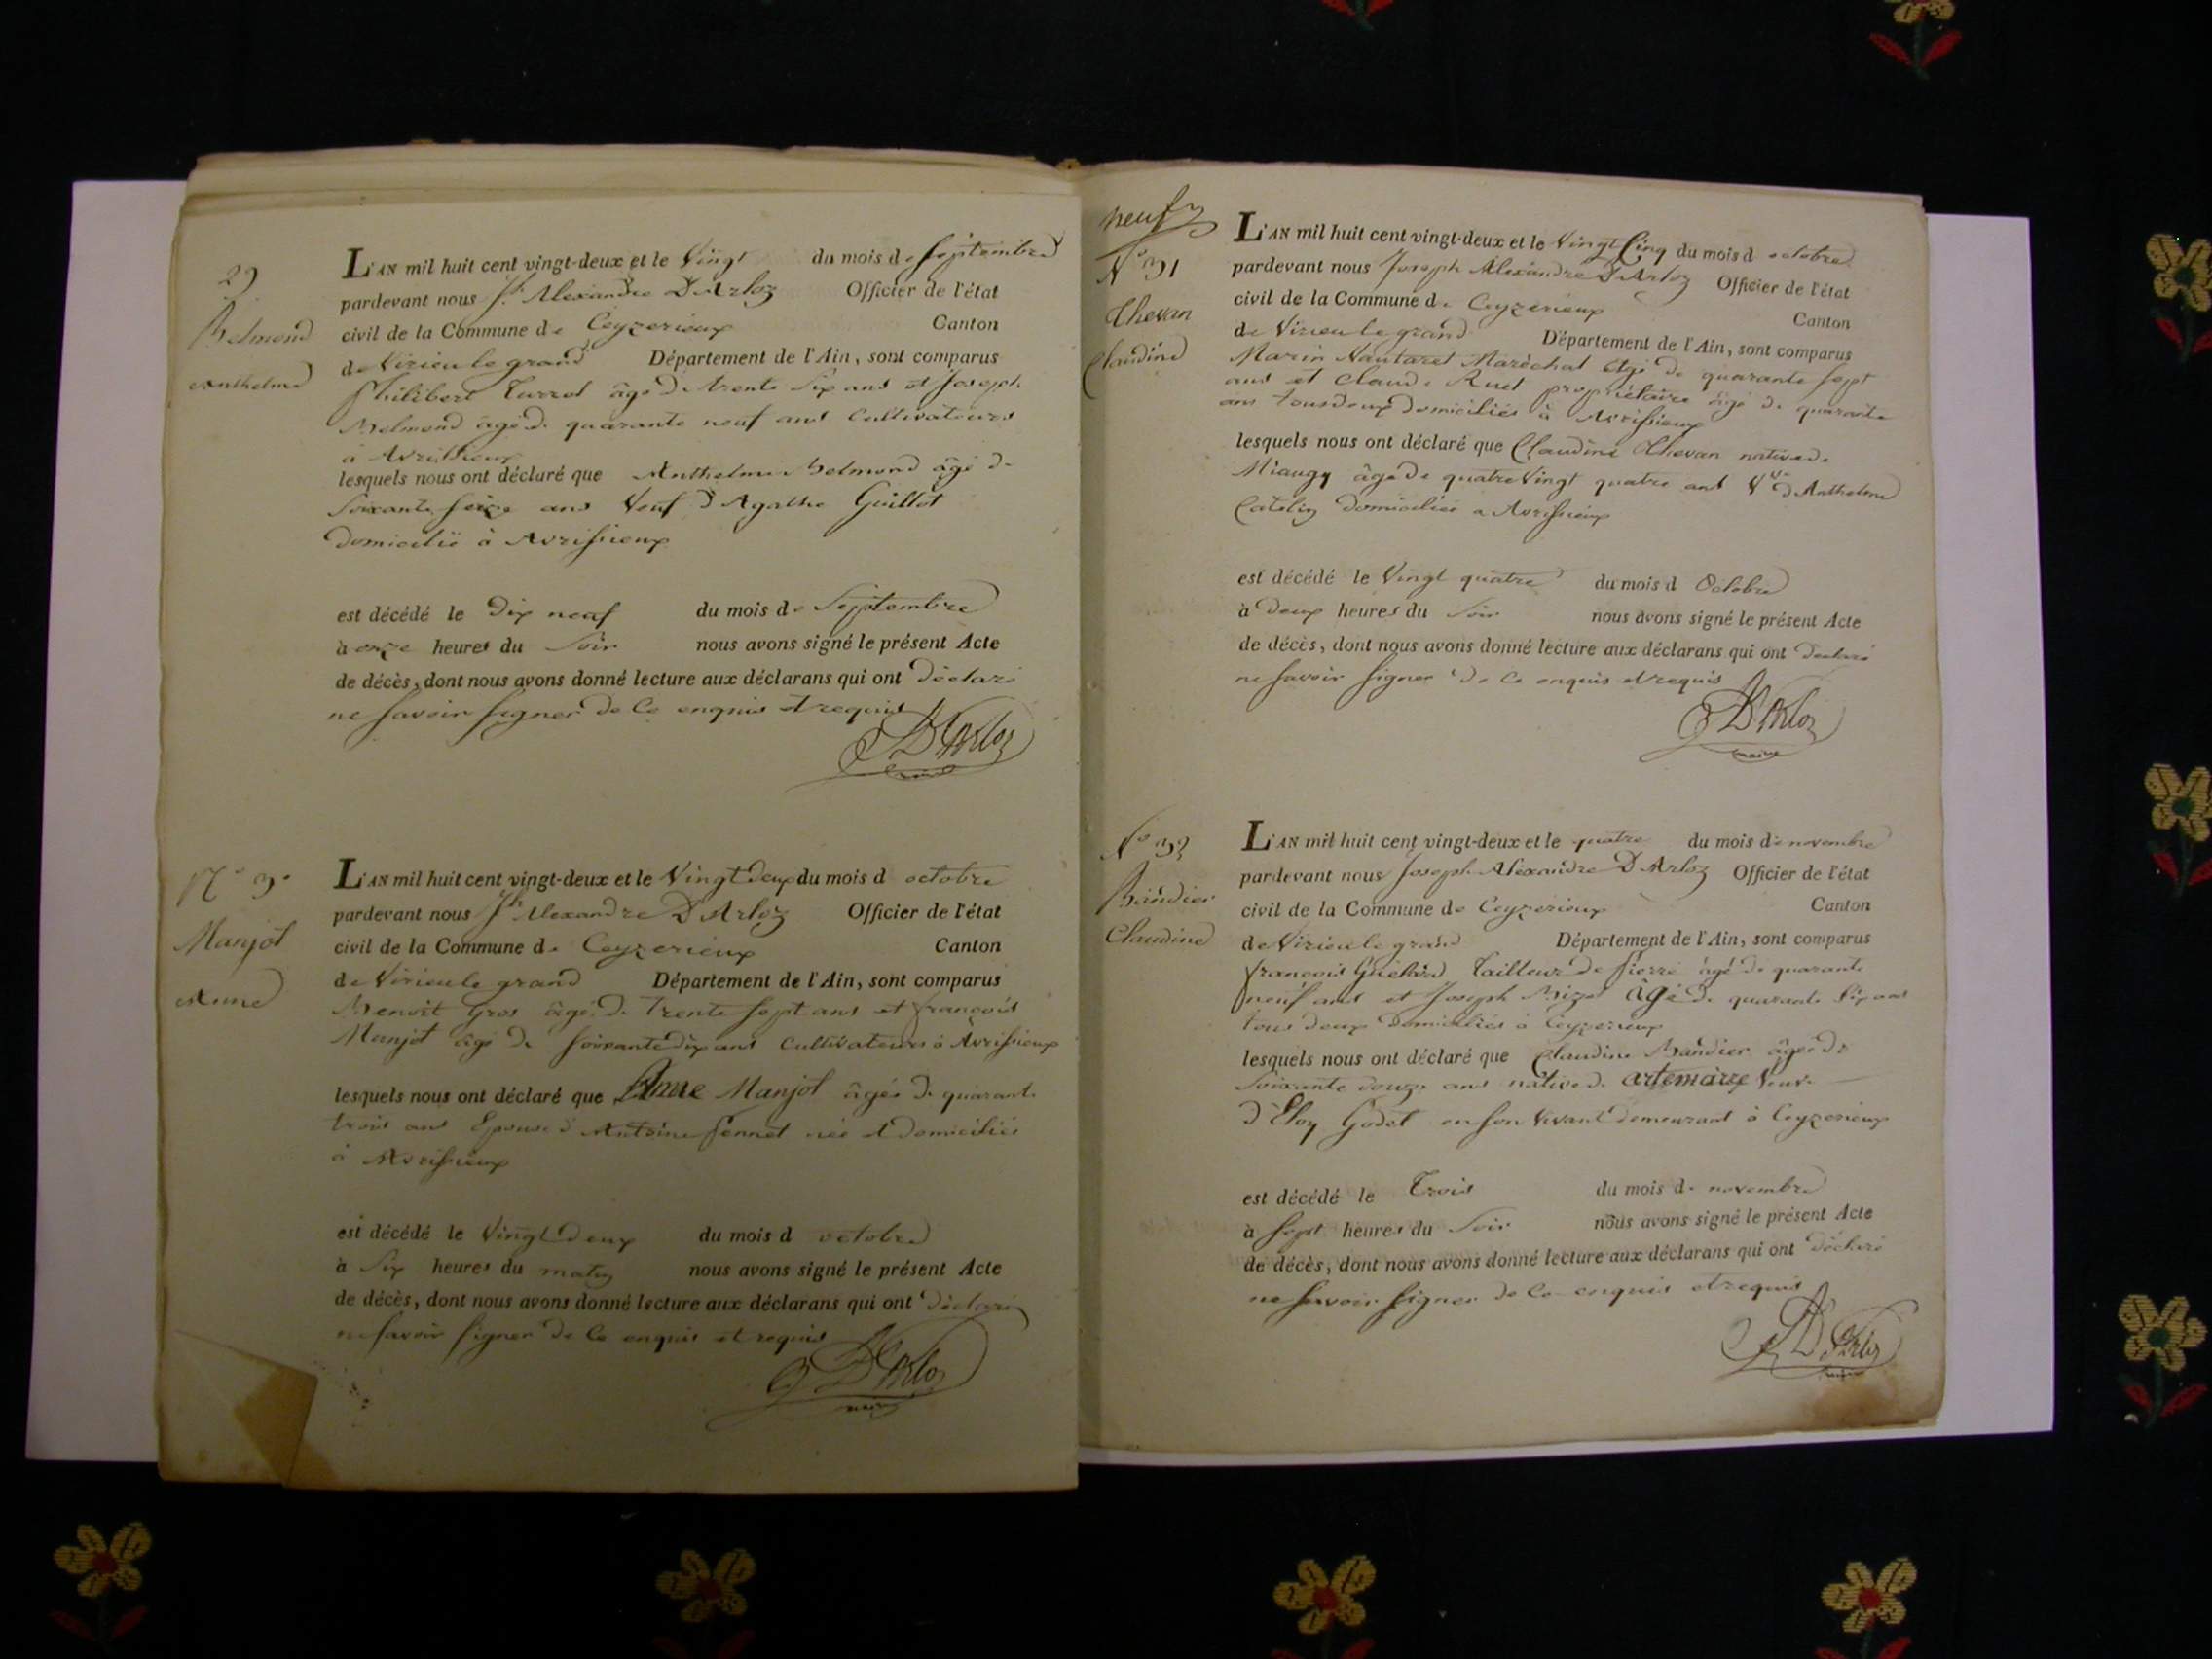 29
Belmond
Anthelme
L'AN mil huit cent vingt-deux et le Vingt du mois de Septembre
pardevant nous Jh Alexandre D'Arloz Officier de l'état
civil de la Commune de Ceyzerieux Canton
de Virieu le grand Département de l'Ain, sont comparus
Philibert Turrel âgé de trente six ans et Joseph
Belmond âgé de quarante neuf ans Cultivateurs
à Avrissieux
lesquels nous ont déclaré que Anthelme Belmond âgé de
Soixante seize ans Veuf d'Agathe Guillot
domicilié à Avrissieux
est décédé le Dix neuf du mois de Septembre
à onze heures du Soir nous avons signé le présent Acte
de décès, dont nous avons donné lecture aux déclarans qui ont déclaré
ne savoir signer de ce enquis et requis
D'Arloz
maire
N° 30
Manjot
Anne
L'AN mil huit cent vingt-deux et le Vingt deux du mois d octobre
pardevant nous Jh Alexandre D'Arloz Officier de l'état
civil de la Commune de Ceyzerieux Canton
de Virieu le grand Département de l'Ain, sont comparus
Benoit Gros âgé de trente sept ans et françois
Manjot âgé de soixante dix ans Cultivateurs à Avrissieux
lesquels nous ont déclaré que Anne Manjot âgée de quarante
trois ans Epouse d'Antoine fennet née et domiciliée
à Avrissieux
est décédé le Vingt deux du mois d octobre
à Six heures du matin nous avons signé le présent Acte
de décès, dont nous avons donné lecture aux déclarans qui ont déclaré
ne savoir signer de ce enquis et requis
D'Arloz
maire
neuf
N° 31
Thevan
Claudine
L'AN mil huit cent vingt-deux et le Vingt Cinq du mois d octobre
pardevant nous Joseph Alexandre D'Arloz Officier de l'état
civil de la Commune de Ceyzerieux Canton
de Virieu le grand Département de l'Ain, sont comparus
Marin Nantaret Maréchal âgé de quarante sept
ans et Claude Ruet propriétaire âgé de quarante
ans tous deux domiciliés à Avrissieux
lesquels nous ont déclaré que Claudine Thevan native de
âgée de quatre Vingt quatre ans Vve d'Anthelme
Catelin domiciliée a Avrissieux
est décédé le Vingt quatre du mois d Octobre
à deux heures du Soir nous avons signé le présent Acte
de décès, dont nous avons donné lecture aux déclarans qui ont déclaré
ne savoir signer de ce enquis et requis
D'Arloz
maire
N° 32
Bandier
Claudine
L'AN mil huit cent vingt-deux et le quatre du mois de novembre
pardevant nous Joseph Alexandre D'Arloz Officier de l'état
civil de la Commune de Ceyzerieux Canton
de Virieu le grand Département de l'Ain, sont comparus
françois Tailleur de pierre âgé de quarante
neuf ans et Joseph Bizet âgé de quarante six ans
tous deux domiciliés à Ceyzerieux
lesquels nous ont déclaré que Claudine Bandier âgée de
Soixante douze ans native de artemarre Veuve
d'Eloy Godet en son Vivant demeurant à Ceyzerieux
est décédé le Trois du mois de novembre
à sept heures du Soir nous avons signé le présent Acte
de décès, dont nous avons donné lecture aux déclarans qui ont déclaré
ne savoir signer de ce enquis et requis
D'Arloz